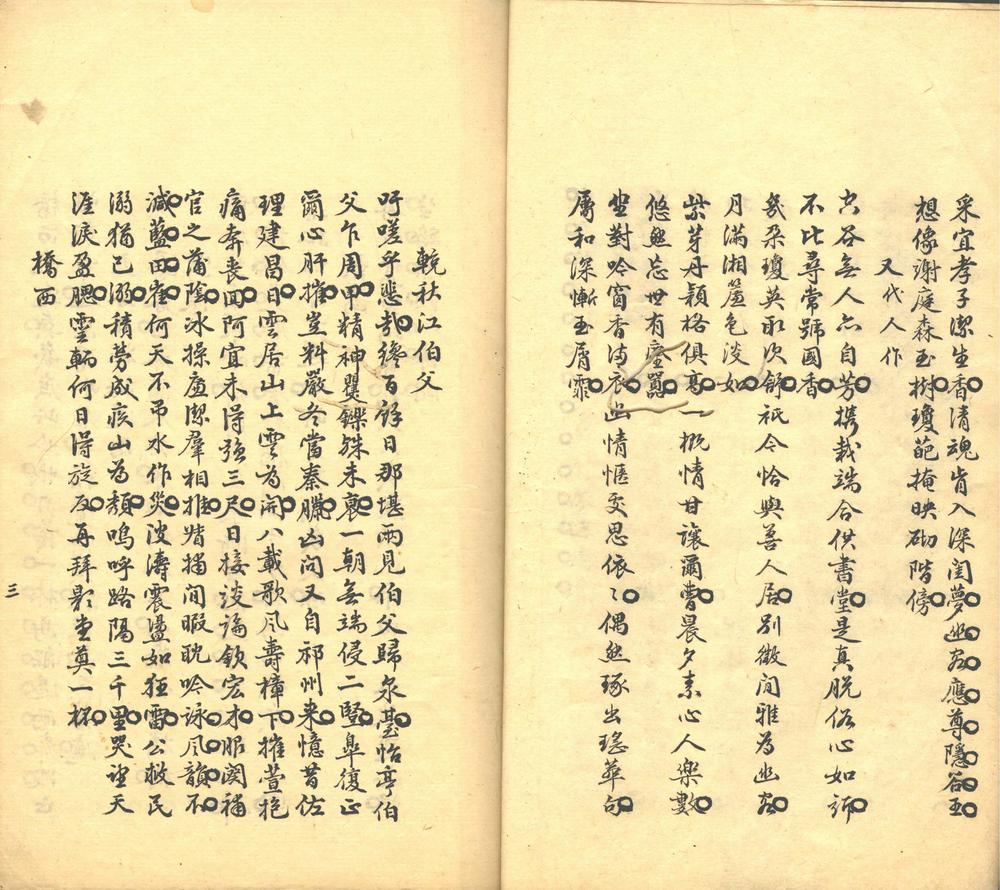 采宜孝子潔生香清魂肯入深閨夢幽客應尊隱谷王
想像謝庭森玉樹瓊葩掩映砌階傍
又代人作
空谷無人亦自芳携栽端合供書堂是真脱俗心如訴
不比尋常號國香
幾朶瓊英取次舒祇今恰與善人居別徵間雅為幽客
月滿湘簾色淡如
紫芽丹穎格俱高一概情甘讓爾曹晨夕素心人樂數
悠然忘世有塵囂
坐對吟窗香满衣幽情愜處思依〻偶然琢出瑤華句
屬和深慚玉屑霏
輓秋江伯父
吁嗟乎悲哉纔百餘日那堪兩見伯父歸泉臺怡亭伯
父乍周甲精神矍鑠殊未衰一朝無端侵二豎皐復正
爾心肝摧豈料嚴冬當秦臘凶問又自祁州来憶昔佐
理建昌日雲居山上雲為開八載歌風壽樟下摧萱抱
痛奔喪回阿宜未得强三尺日接淡論欽宏才服闋補
官之蒲陰冰操廉潔羣相推婼揚間暇耽吟詠風韻不
減藍田崔何天不吊水作災波濤震盪如狂雷公救民
溺猶已溺積勞成疾山為頹嗚呼路隔三千里哭望天
涯淚盈腮雲輀何日得旋反再拜影堂奠一杯
橋西
三